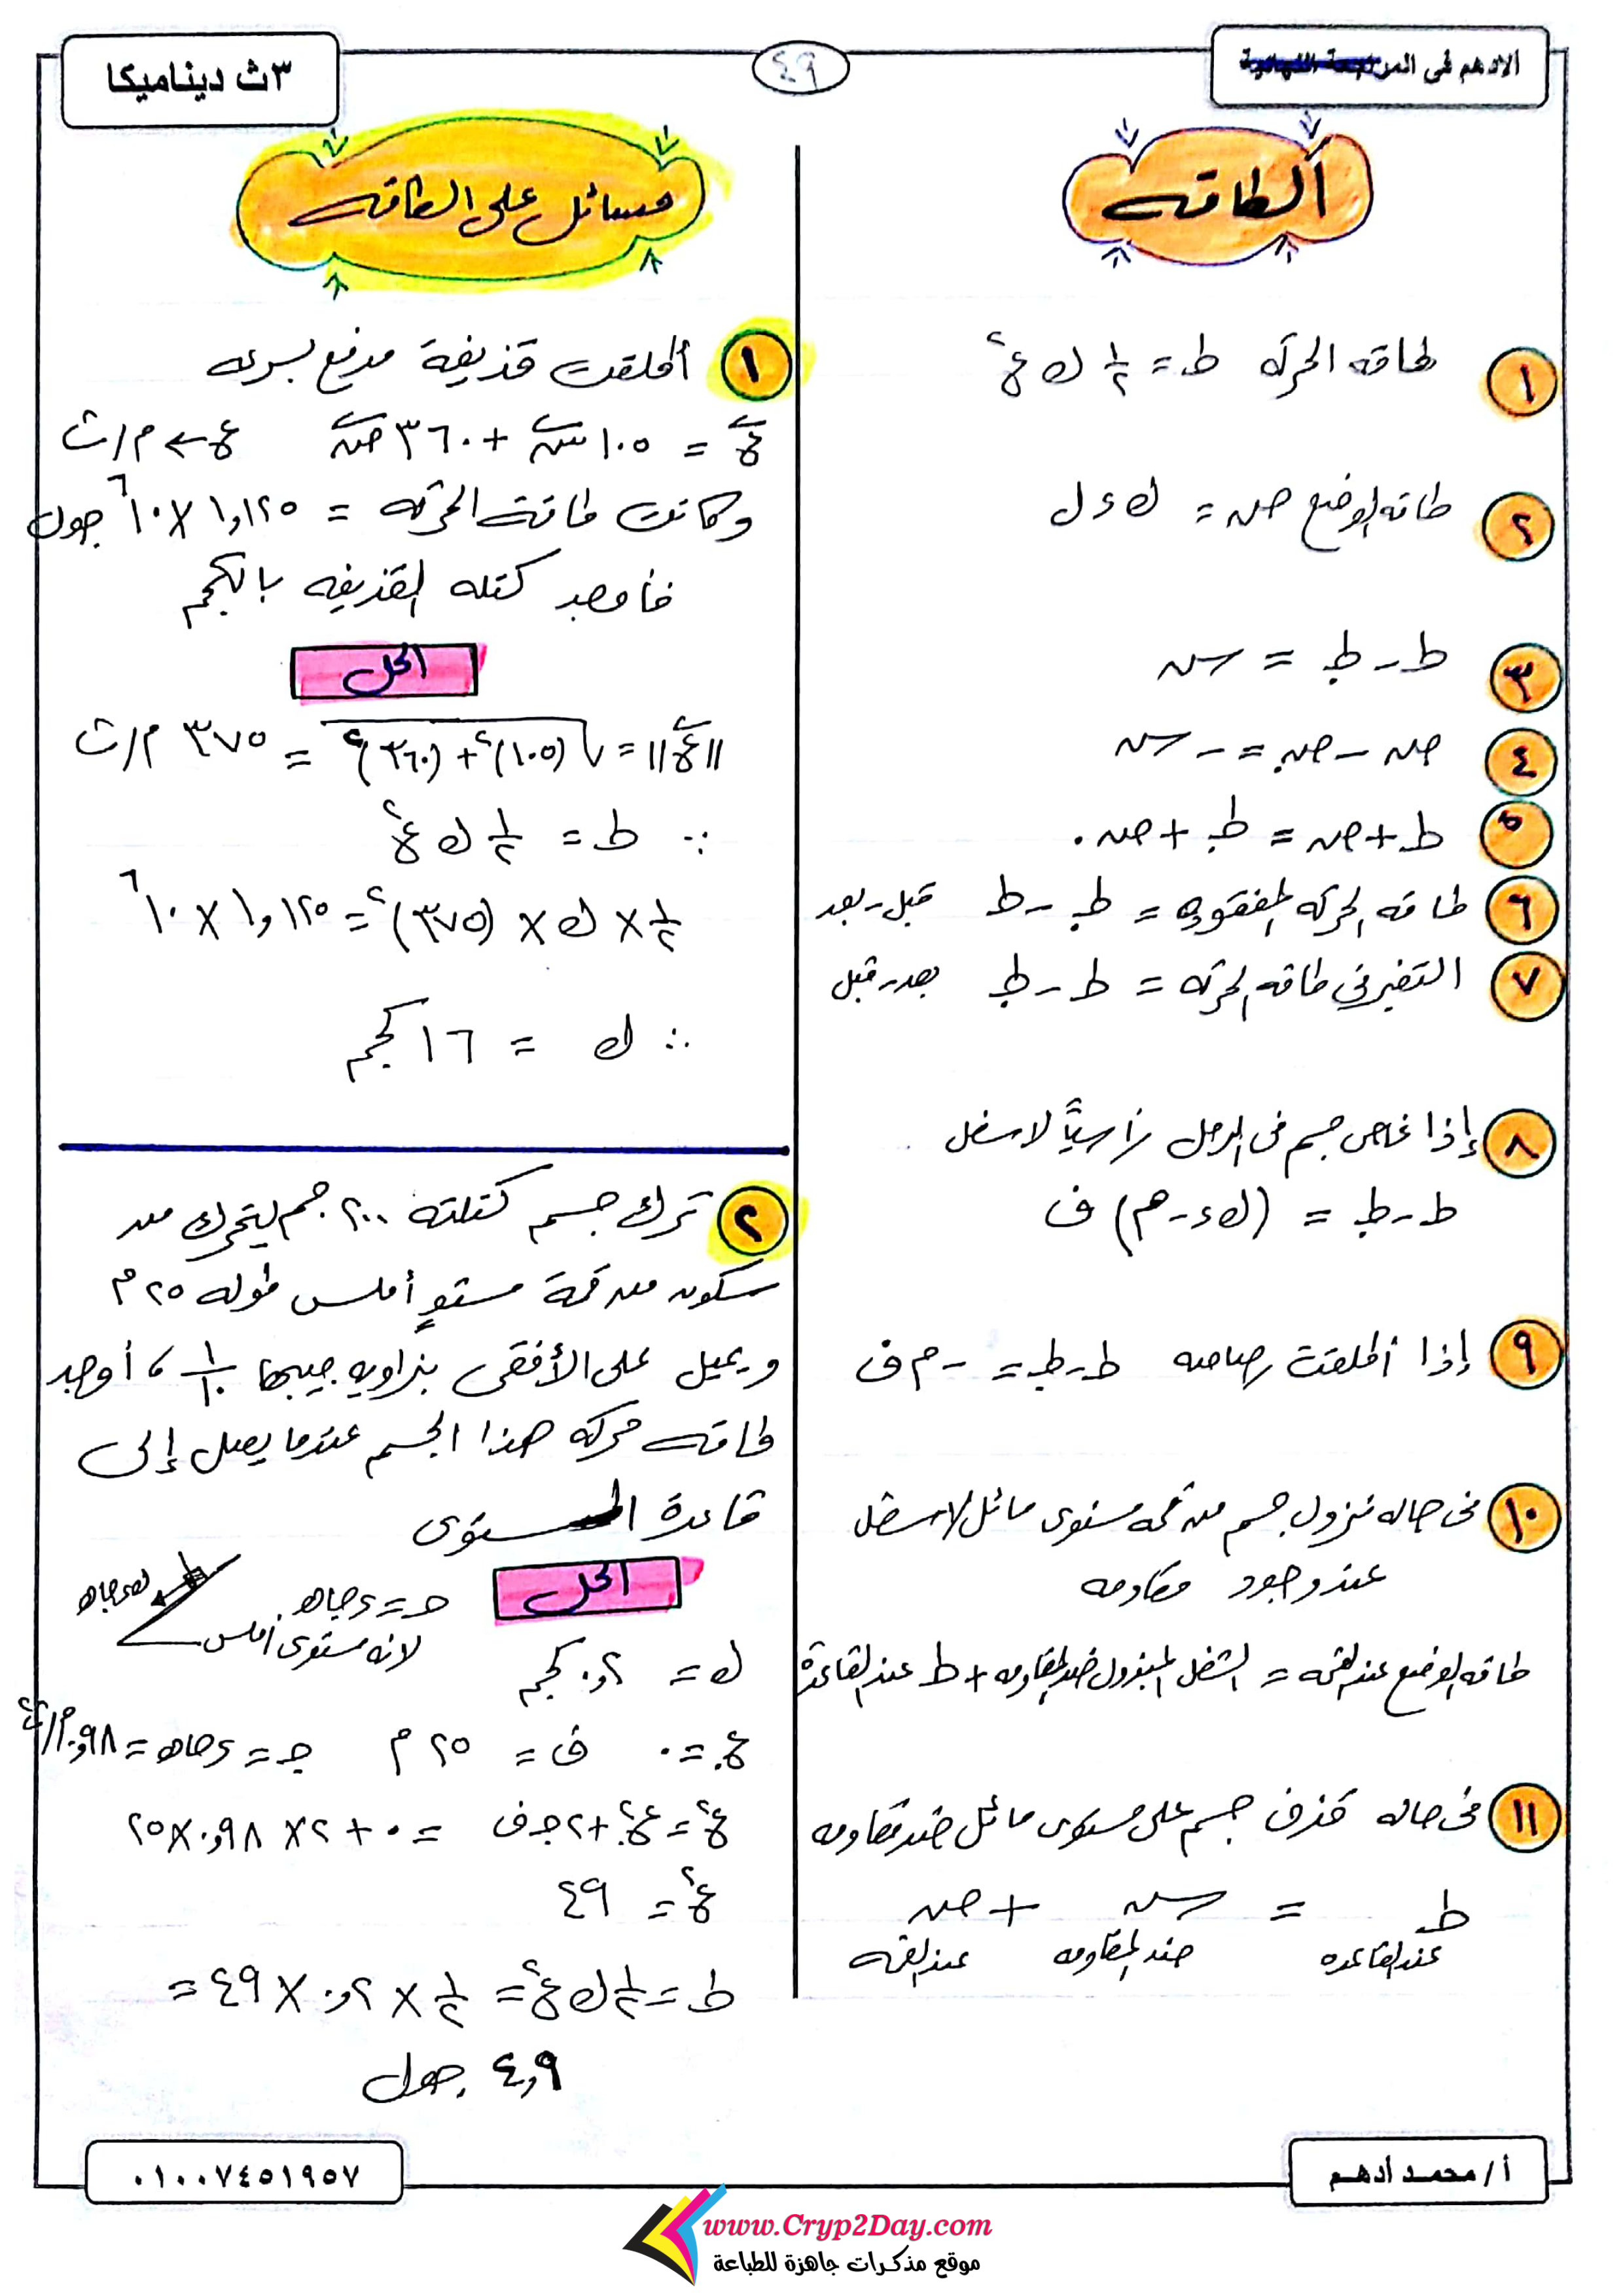 الادهم فى المراجعة النهائية
٤٩
٣ث ديناميكا
الطاقه
١ طاقه الحركه ط = ١/٢ ك ع٢
٢ طاقه الوضع ص = ك ء ل
٣ ط - ط. = ش
٤ ص - ص. = - ش
٥ ط + ص = ط. + ص.
٦ طاقه الحركه المفقوده = ط. - ط قبل - بعد
٧ التغير فى طاقه الحركه = ط - ط. بعد - قبل
٨ إذا غاص جسم فى الرمل رأسياً لاسفل
ط - ط. = (ك ء - م) ف
٩ إذا أطلقت رصاصه ط - ط. = - م ف
١٠ فى حاله نزول جسم من قمه مستوى مائل لاسفل
عند وجود مقاومه
طاقه الوضع عند القمه = الشغل المبذول ضد المقاومه + ط عند القاعدة
١١ فى حاله قذف جسم على مستوى مائل ضد مقاومه
ط. = ش + ص
عند القاعده ضد المقاومه عند القمه
مسائل على الطاقه
١ أطلقت قذيفة مدفع بسرعه
ع = ١٠٥ س + ٣٦٠ ص ع ← م/ث
وكانت طاقة الحركه = ١,١٢٥ × ١٠٦ جول
فأوجد كتله القذيفه بالكجم
الحل
||ع|| = √(١٠٥)٢ + (٣٦٠)٢ = ٣٧٥ م/ث
∵ ط = ١/٢ ك ع٢
١/٢ × ك × (٣٧٥)٢ = ١,١٢٥ × ١٠٦
∴ ك = ١٦ كجم
٢ ترك جسم كتلته ٢٠٠ جم ليتحرك من
سكون من قمة مستوٍ أملس طوله ٢٥ م
ويميل على الأفقى بزاويه جيبها ١/١٠ ، أوجد
طاقه حركه هذا الجسم عندما يصل إلى
قاعدة المستوى
الحل
حـ = ء جاهـ
لانه مستوى أملس
ك ء جاهـ
ك = ٠,٢ كجم
ع. = ٠ ف = ٢٥ م جـ = ء جاهـ = ٠,٩٨ م/ث٢
ع٢ = ع.٢ + ٢ جـ ف = ٠ + ٢ × ٠,٩٨ × ٢٥
ع٢ = ٤٩
ط = ١/٢ ك ع٢ = ١/٢ × ٠,٢ × ٤٩ =
٤,٩ جول
أ / محمد أدهم
٠١٠٠٧٤٥١٩٥٧
www.Cryp2Day.com
موقع مذكرات جاهزة للطباعة